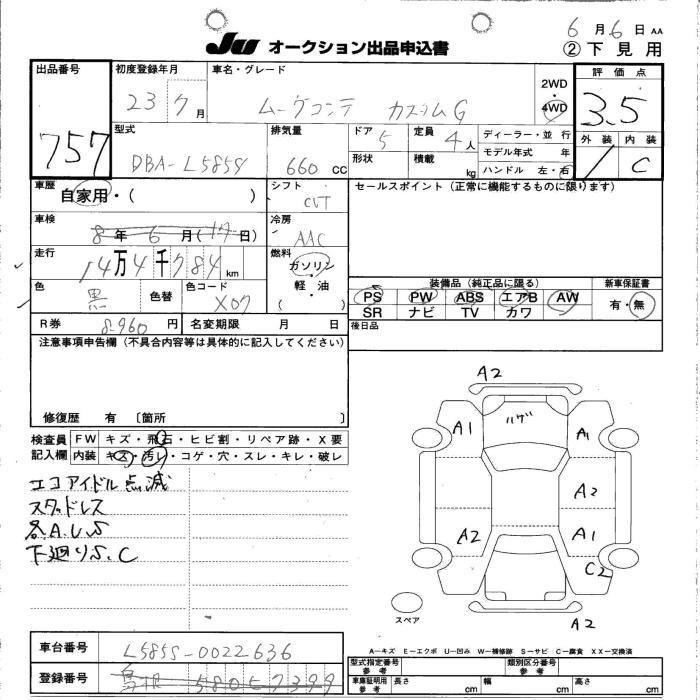 6月6日 AA
JU オークション出品申込書
② 下見用
出品番号 757
初度登録年月 23 7月
車名・グレード ムーヴコンテ カスタムG
2WD・4WD
評価点 3.5
外装 / 内装 C
型式 DBA-L585S
排気量 660 cc
ドア 5
形状
定員 4人
積載 kg
ディーラー・並行
モデル年式 年
ハンドル 左・右
車歴 自家用・( )
シフト CVT
セールスポイント(正常に機能するものに限ります)
車検 8年6月(17日)
冷房 AAC
走行 14万4千784km
燃料 ガソリン・軽油 ( )
色 黒 色替 色コード X07
装備品(純正品に限る)
PS PW ABS エアB AW
SR ナビ TV カワ
新車保証書 有・無
R券 8960円 名変期限 月 日
後日品
注意事項申告欄(不具合内容等は具体的に記入してください)
修復歴 有〔箇所 〕
検査員記入欄
FW キズ・飛石・ヒビ割・リペア跡・X要
内装 キズ・汚レ・コゲ・穴・スレ・キレ・破レ
エコアイドル点滅
スタッドレス
各A.U.S
下廻りS.C
A2
A1 ハゲ A1
A2
A2 A1
C2
A2
スペア
車台番号 L585S-0022636
登録番号 島根 580 く 7399
A―キズ E―エクボ U―凹み W―補修跡 S―サビ C―腐食 XX―交換済
型式指定番号 参考
類別区分番号 参考
車庫証明用 参考 長さ cm 幅 cm 高さ cm